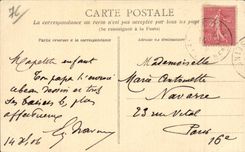 76
CARTE POSTALE
La correspondance au verso n'est pas acceptée par tous les pays étrangers
(Se renseigner à la Poste)
Ma petite enfant
Ton papa t'envoie
ce beau dessin et tous
ses baisers les plus
affectueux
14 2/06
Mademoiselle
Marie Antoinette
Navarre
23 rue Vital
Paris
16e